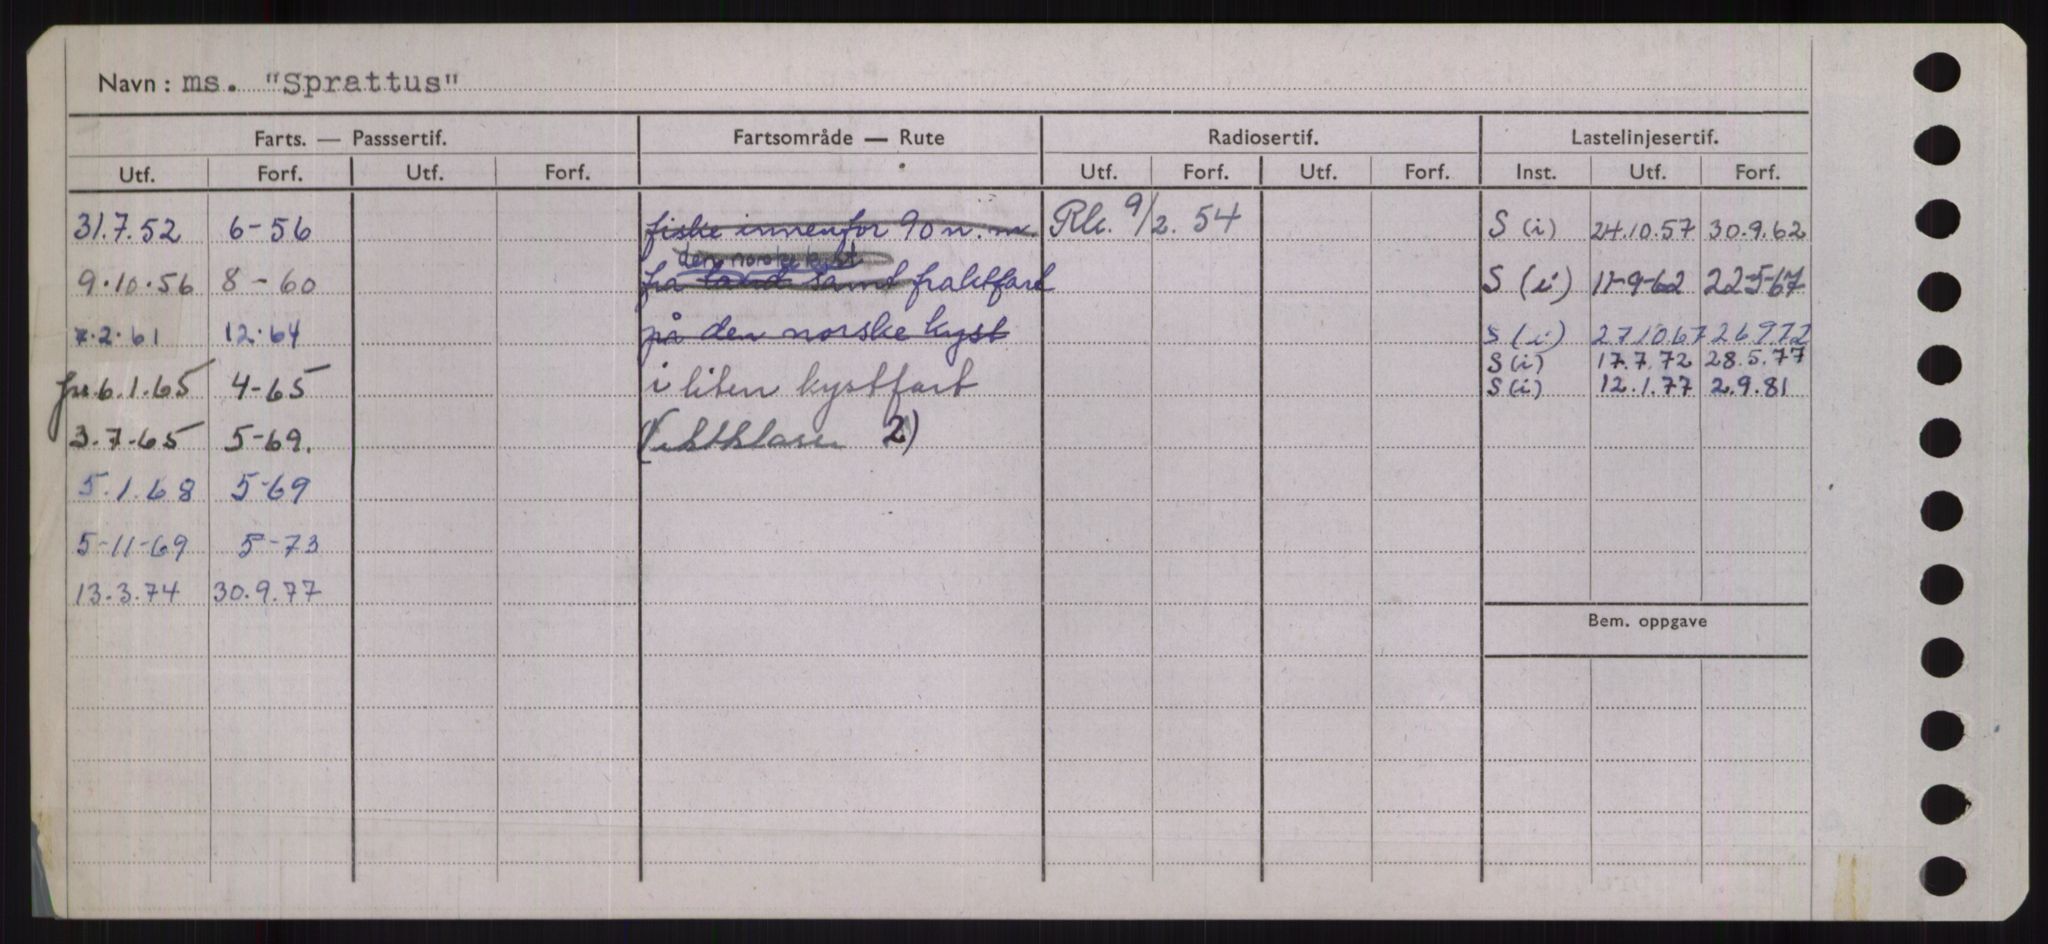 Navn: ms. "Sprattus"
Farts. — Passsertif. Fartsområde — Rute Radiosertif. Lastelinjesertif.
Utf. Forf. Utf. Forf. Utf. Forf. Utf. Forf. Inst. Utf. Forf.
31.7.52 6-56 fiske innenfor 90 n. m. Rle. 9/2. 54 S (i) 24.10.57 30.9.62
den norske kyst
9.10.56 8-60 fra land samt fraktfart S (i) 11-9-62 22-5-67
7.2.61 12.64 på den norske kyst S (i) 27.10.67 26.9.72
S (i) 17.7.72 28.5.77
6.1.65 4-65 i liten kystfart S (i) 12.1.77 2.9.81
3.7.65 5-69. 2)
5.1.68 5-69
5-11-69 5-73
13.3.74 30.9.77
Bem. oppgave